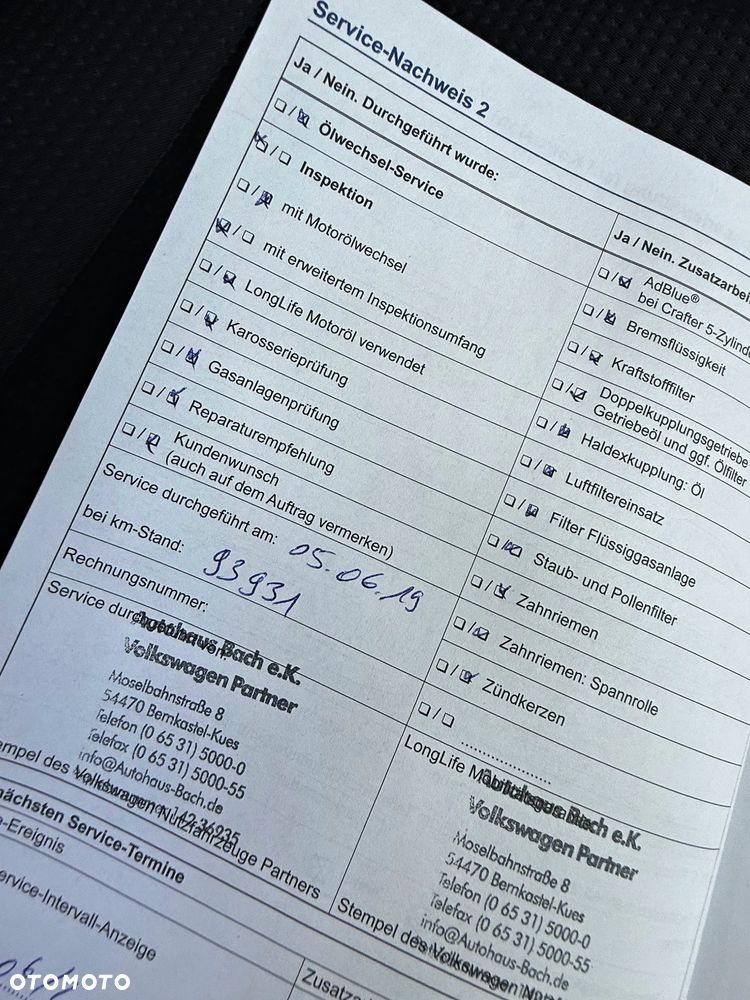 Service-Nachweis 2
Ja / Nein. Durchgeführt wurde:
☐ / ☒ Ölwechsel-Service
☒ / ☐ Inspektion
☐ / ☒ mit Motorölwechsel
☒ / ☐ mit erweitertem Inspektionsumfang
☐ / ☒ LongLife Motoröl verwendet
☐ / ☒ Karosserieprüfung
☐ / ☒ Gasanlagenprüfung
☐ / ☒ Reparaturempfehlung
☐ / ☒ Kundenwunsch
(auch auf dem Auftrag vermerken)
Service durchgeführt am: 05.06.19
bei km-Stand: 93931
Rechnungsnummer:
Service
Autohaus Bach e.K.
Volkswagen Partner
Moselbahnstraße 8
54470 Bernkastel-Kues
Telefon (0 65 31) 5000-0
Telefax (0 65 31) 5000-55
info@Autohaus-Bach.de
Stempel des Volkswagen Nutzfahrzeuge Partners
Ja / Nein. Zusatzarbei
☐ / ☒ AdBlue®
bei Crafter 5-Zylind
☐ / ☒ Bremsflüssigkeit
☐ / ☒ Kraftstofffilter
☐ / ☒ Doppelkupplungsgetriebe
Getriebeöl und ggf. Ölfilter
☐ / ☒ Haldexkupplung: Öl
☐ / ☒ Luftfiltereinsatz
☐ / ☒ Filter Flüssiggasanlage
☐ / ☒ Staub- und Pollenfilter
☐ / ☒ Zahnriemen
☐ / ☒ Zahnriemen: Spannrolle
☐ / ☒ Zündkerzen
☐ / ☐ ....................
LongLife
Autohaus Bach e.K.
Volkswagen Partner
Moselbahnstraße 8
54470 Bernkastel-Kues
Telefon (0 65 31) 5000-0
Telefax (0 65 31) 5000-55
info@Autohaus-Bach.de
Stempel des Volkswagen
nächsten Service-Termine
-Ereignis
ervice-Intervall-Anzeige
Zusatza
OTOMOTO